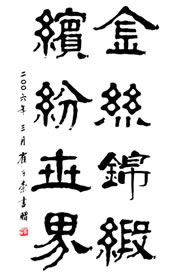 金絲錦緞
繽紛世界
二〇〇六年三月崔子崇書贈